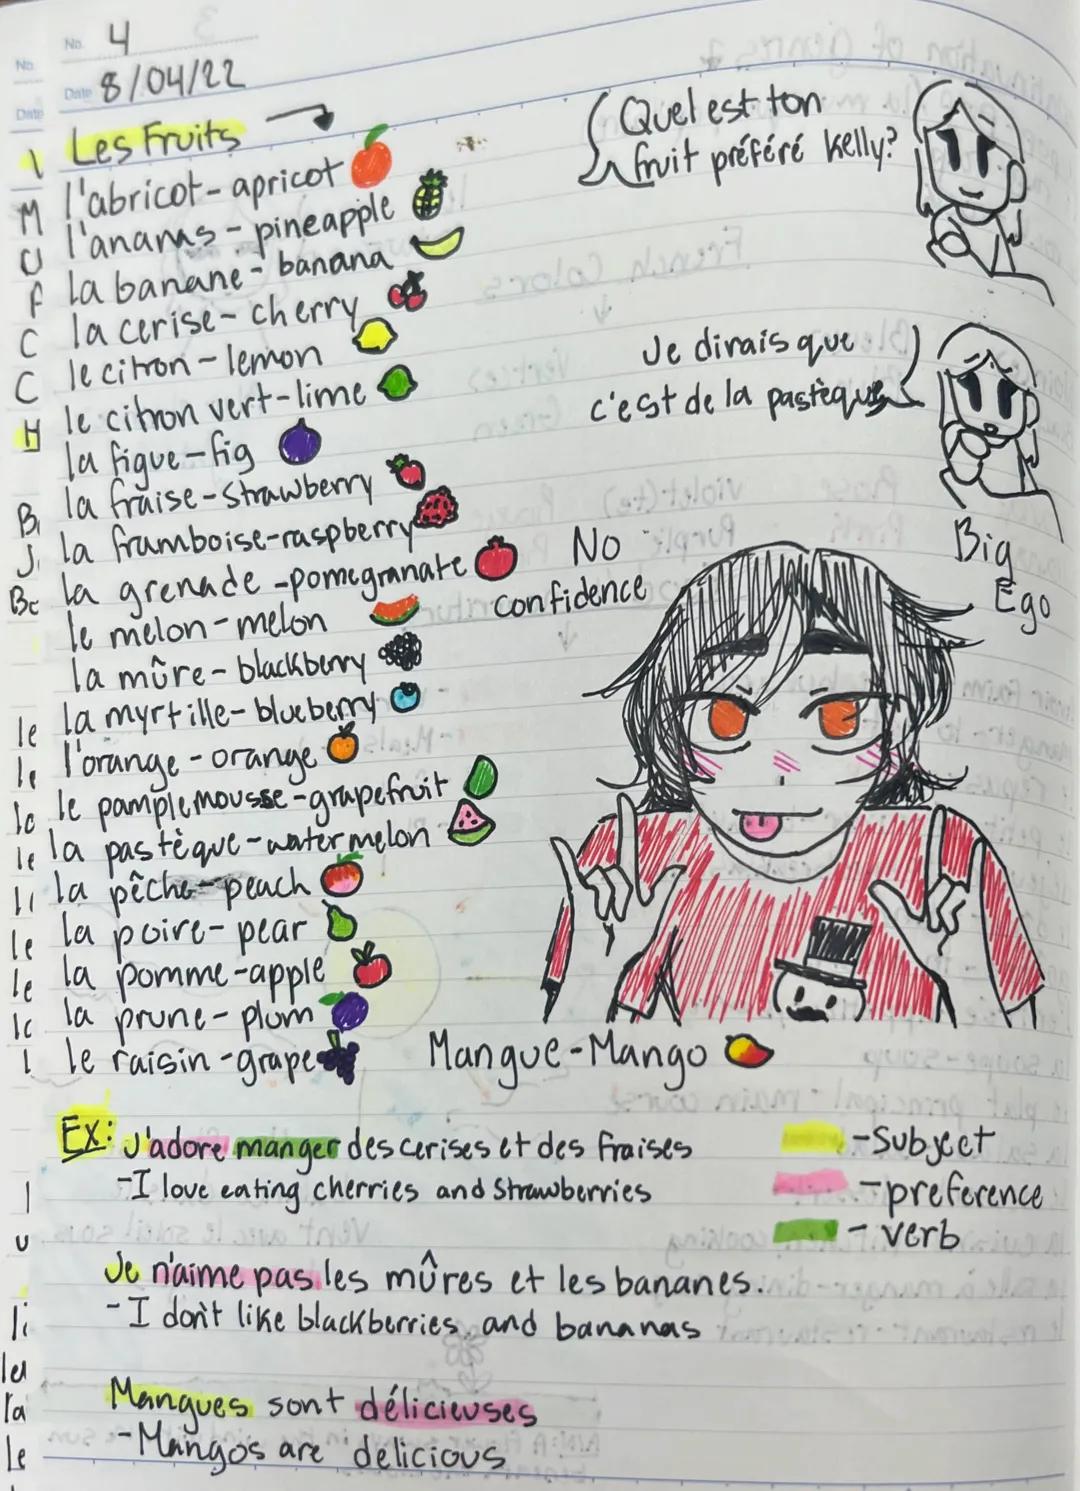 No. 4
Date 8/04/22
Les Fruits
l'abricot - apricot
l'ananas - pineapple
la banane - banana
la cerise - cherry
le citron - lemon
le citron vert - lime
la figue - fig
la fraise - strawberry
la framboise - raspberry
la grenade - pomegranate
le melon - melon
la mûre - blackberry
la myrtille - blueberry
l'orange - orange
le pamplemousse - grapefruit
la pastèque - watermelon
la pêche - peach
la poire - pear
la pomme - apple
la prune - plum
le raisin - grape
Mangue - Mango
Quel est ton
fruit préféré Kelly?
Je dirais que
c'est de la pastèque
No
confidence
Big
Ego
Ex: J'adore manger des cerises et des fraises
- I love eating cherries and Strawberries
Je n'aime pas les mûres et les bananes.
- I don't like blackberries and bananas
Mangues sont délicieuses
- Mangos are delicious
- Subject
- preference
- verb